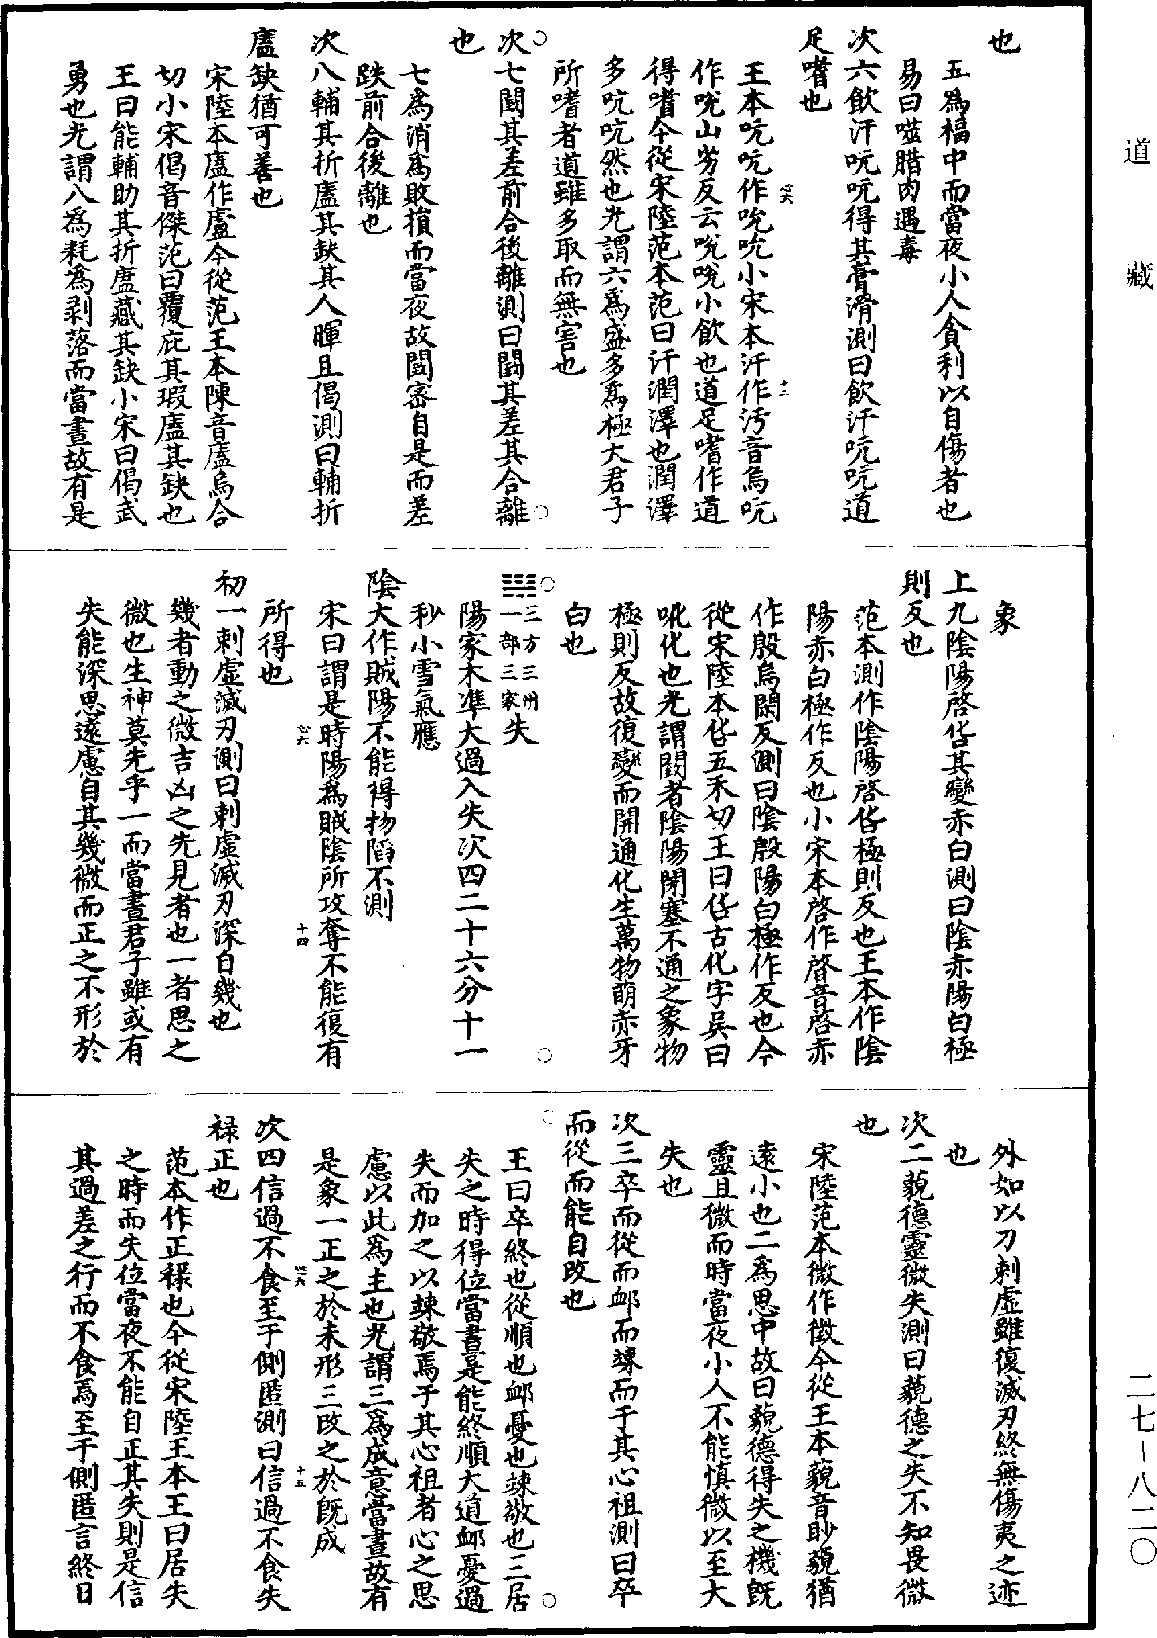 道藏
也
五為福中而當夜小人貪利以自傷者也
易曰噬腊肉遇毒
次六飲汗吭吭得其膏滑測曰飲汗吭吭道
足嗜也
王本吭吭作哾哾小宋本汗作汚音烏吭
作哾山劣反云哾哾小飲也道足嗜作道
得嗜今從宋陸范本范曰汗潤澤也潤澤
多吭吭然也光謂六為盛多為極大君子
所嗜者道雖多取而無害也
次七闔其差前合後離測曰闔其差其合離
也
七為消為敗損而當夜故闔審自是而差
跌前合後離也
次八輔其折廬其缺其人暉且偈測曰輔折
廬缺猶可善也
宋陸本廬作盧今從范王本陳音廬烏合
切小宋偈音傑范曰覆庇其瑕廬其缺也
王曰能輔助其折廬藏其缺小宋曰偈武
勇也光謂八為耗為剥落而當晝故有是
象
上九陰陽啓㕦其變赤白測曰陰赤陽白極
則反也
范本測作陰陽啓㕦極則反也王本作陰
陽赤白極作反也小宋本啓作晵音啓赤
作殷烏閑反測曰陰殷陽白極作反也今
從宋陸本㕦五禾切王曰㕦古化字吳曰
吪化也光謂閡者陰陽閉塞不通之象物
極則反故復變而開通化生萬物萌赤牙
白也
三方三州
一部三家失
陽家木準大過入失次四二十六分十一
秒小雪氣應
陰大作賊陽不能得物䧟不測
宋曰謂是時陽為賊陰所攻奪不能復有
所得也
初一刺虛滅刃測曰刺虛滅刃深自幾也
幾者動之微吉凶之先見者也一者思之
微也生神莫先乎一而當晝君子雖或有
失能深思遠慮自其幾微而正之不形於
外如以刀刺虛雖復滅刃終無傷夷之迹
也
次二藐德靈微失測曰藐德之失不知畏微
也
宋陸范本微作徵今從王本藐音眇藐猶
遠小也二為思中故曰藐德得失之機既
靈且微而時當夜小人不能慎微以至大
失也
次三卒而從而䘏而竦而于其心祖測曰卒
而從而能自改也
王曰卒終也從順也䘏憂也竦敬也三居
失之時得位當晝是能終順大道䘏憂過
失而加之以竦敬焉于其心祖者心之思
慮以此為主也光謂三為成意當晝故有
是象一正之於未形三改之於既成
次四信過不食至于側匿測曰信過不食失
禄正也
范本作正禄也今從宋陸王本王曰居失
之時而失位當夜不能自正其失則是信
其過差之行而不食焉至于側匿言終日
二七—八二〇